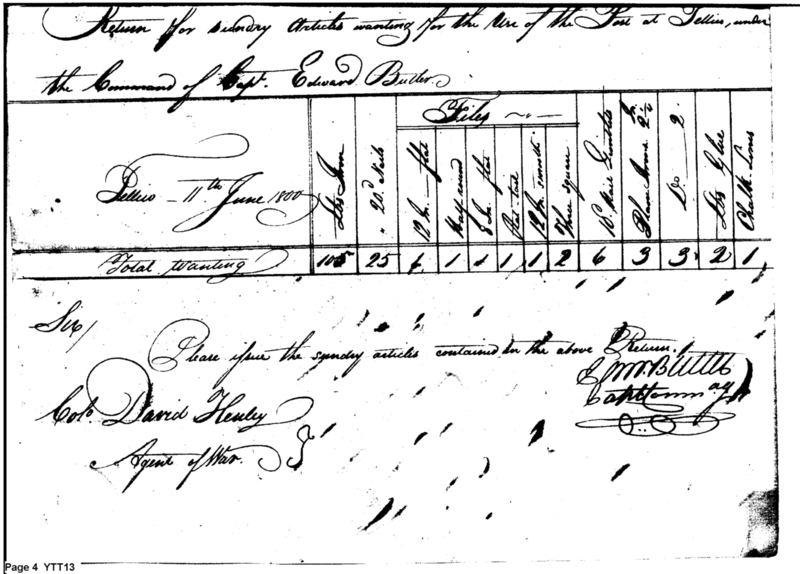 Return for sundry Articles wanting for the Use of the Post at Tellico, under
the Command of Capt. Edward Butler.
Files
Tellico 11th June 1800
lbs Iron
" 20d Nails
12 In. flat
Half round
8 In. flat
12 In. smooth
Three square
Nail Gimblets
Plane Irons In. 2½
Do 2
lbs Glue
Chalk Lines
Total Wanting 105 25 1 1 1 1 2 6 3 3 2 1
Sir/
Please issue the sundry articles contained in the above Return.
Edwd. Butler
Capt Comm
Colo. David Henley
Agent of War.
Page 4 YTT13